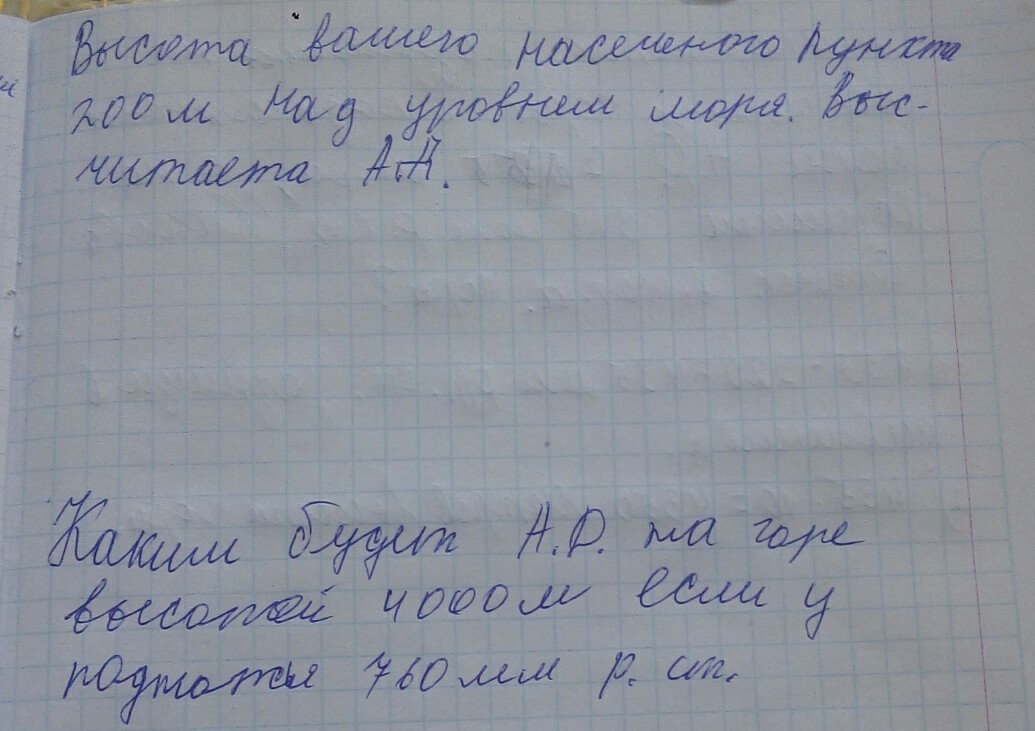 Высота вашего населеного пункта
200 м над уровнем моря. Выс-
читаета А.Д.
Каким будет А.Д. на горе
высотой 4000 м если у
подножья 760 мм р. ст.